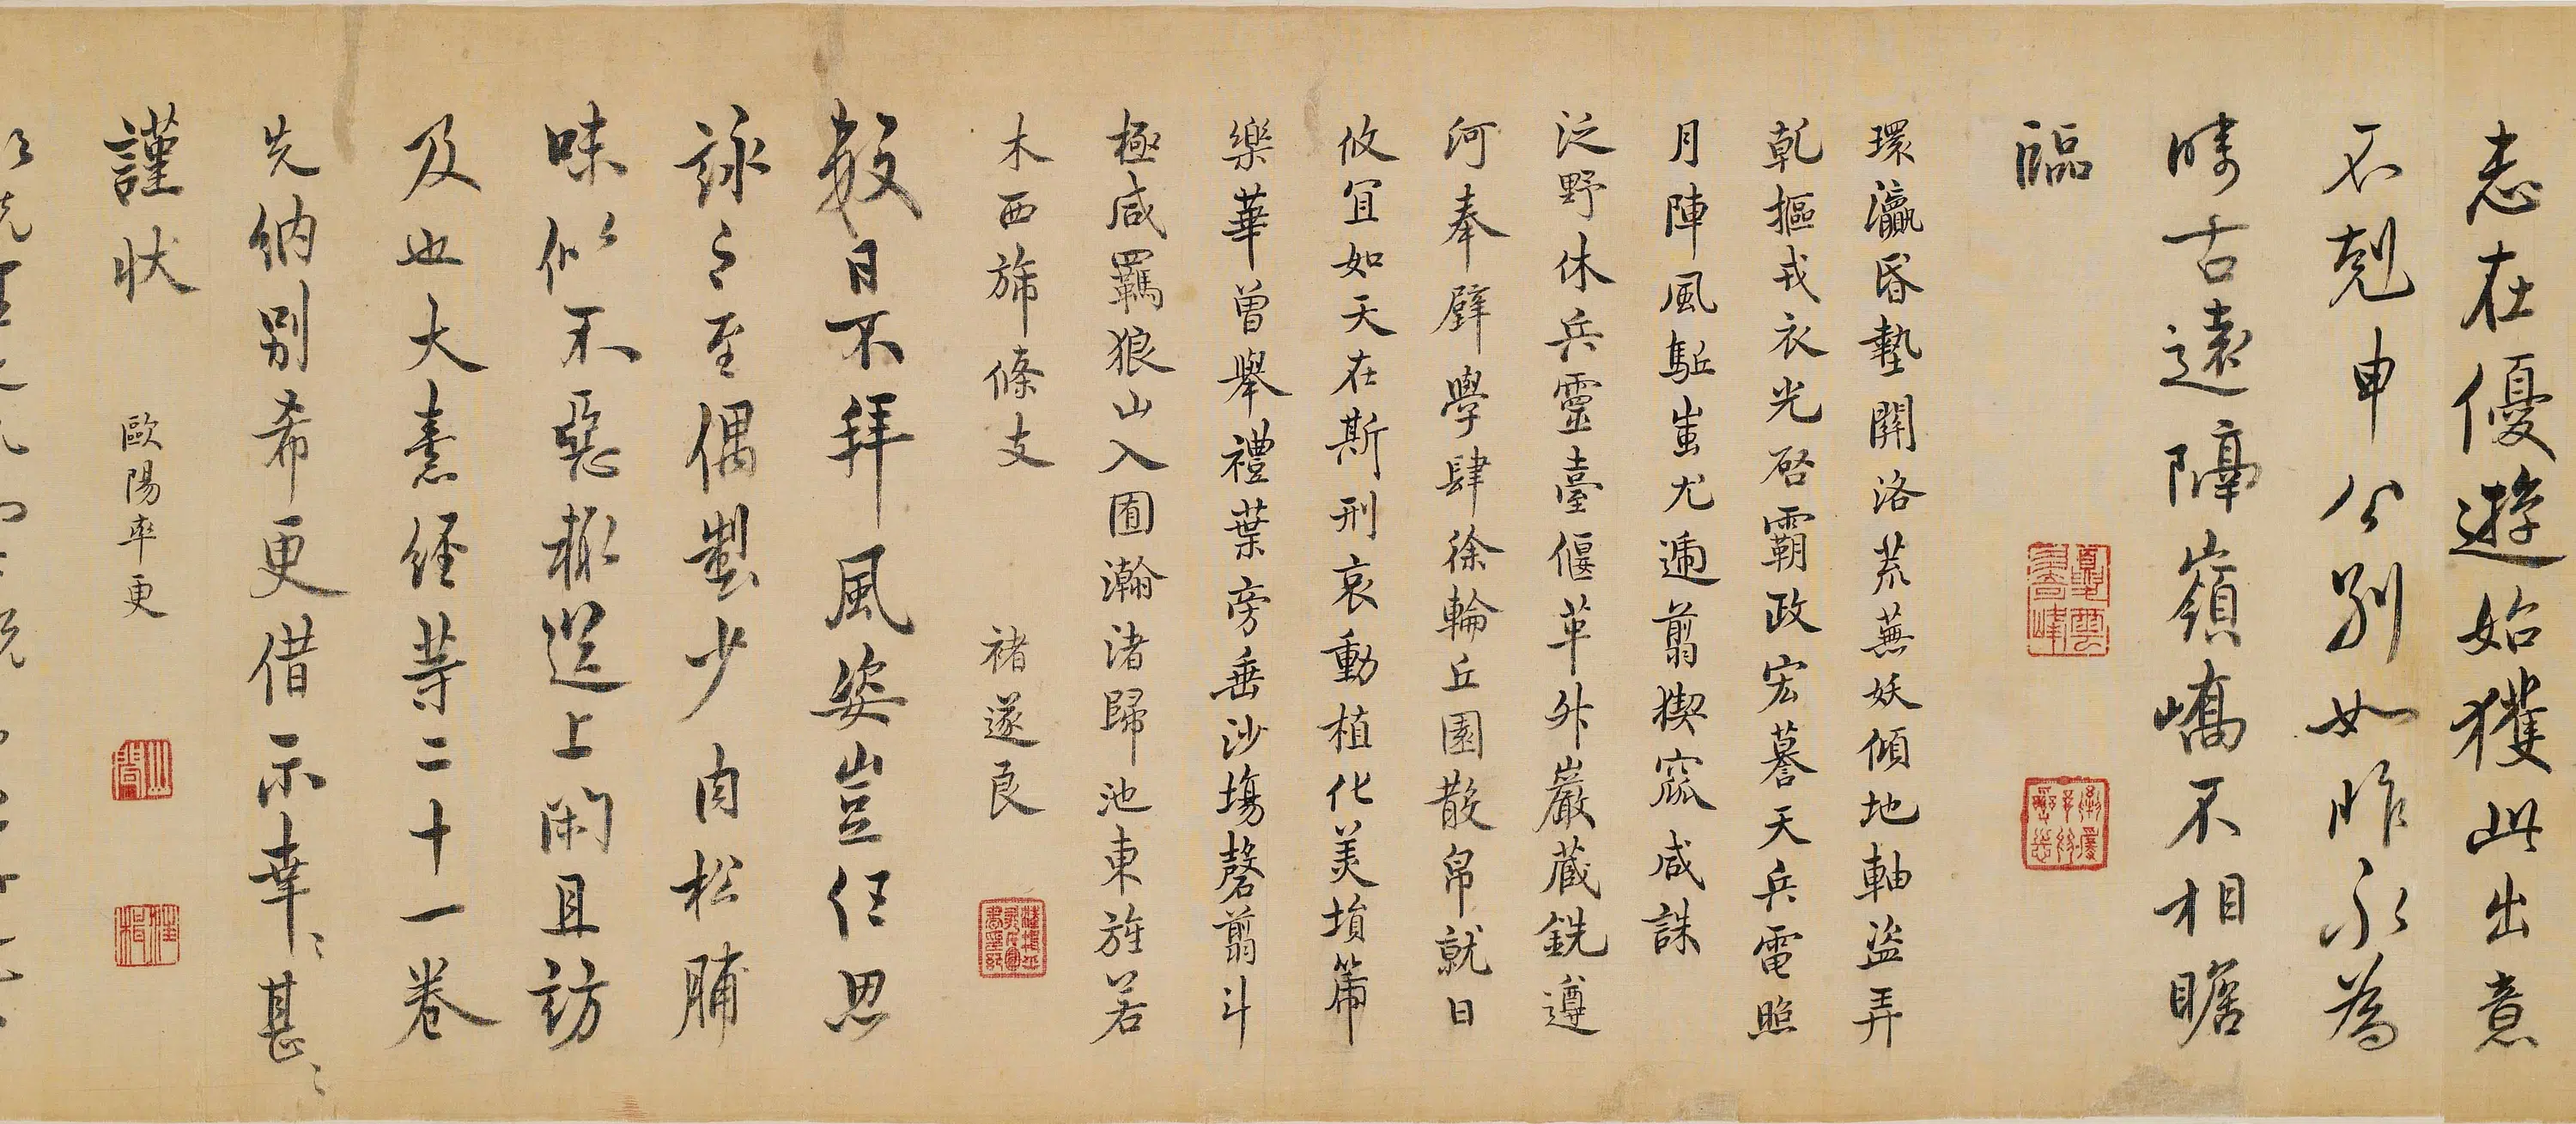 志在優遊始獲此出意
不剋申公別如昨永為
疇古遠隔嶺嶠不相瞻
臨
環瀛昏墊開洛荒蕪妖傾地軸盜弄
乾樞戎衣光啓霸政宏謩天兵電照
月陣風駈蚩尤遁翦猰窳咸誅
泛野休兵靈臺偃革外嚴藏銑遵
河奉璧學肆徐輪丘園散帛就日
攸宜如天在斯刑哀動植化美塤篪
樂華曾舉禮葉旁垂沙場罄翦斗
極咸羈狼山入囿瀚渚歸池東旌若
木西旆條支
褚遂良
數日不拜風姿豈任思
詠〻至偶製少肉松脯
味似不惡輒送上閑且訪
及也大素經等二十一卷
先納別希更借示幸〻甚〻
謹狀
歐陽率更